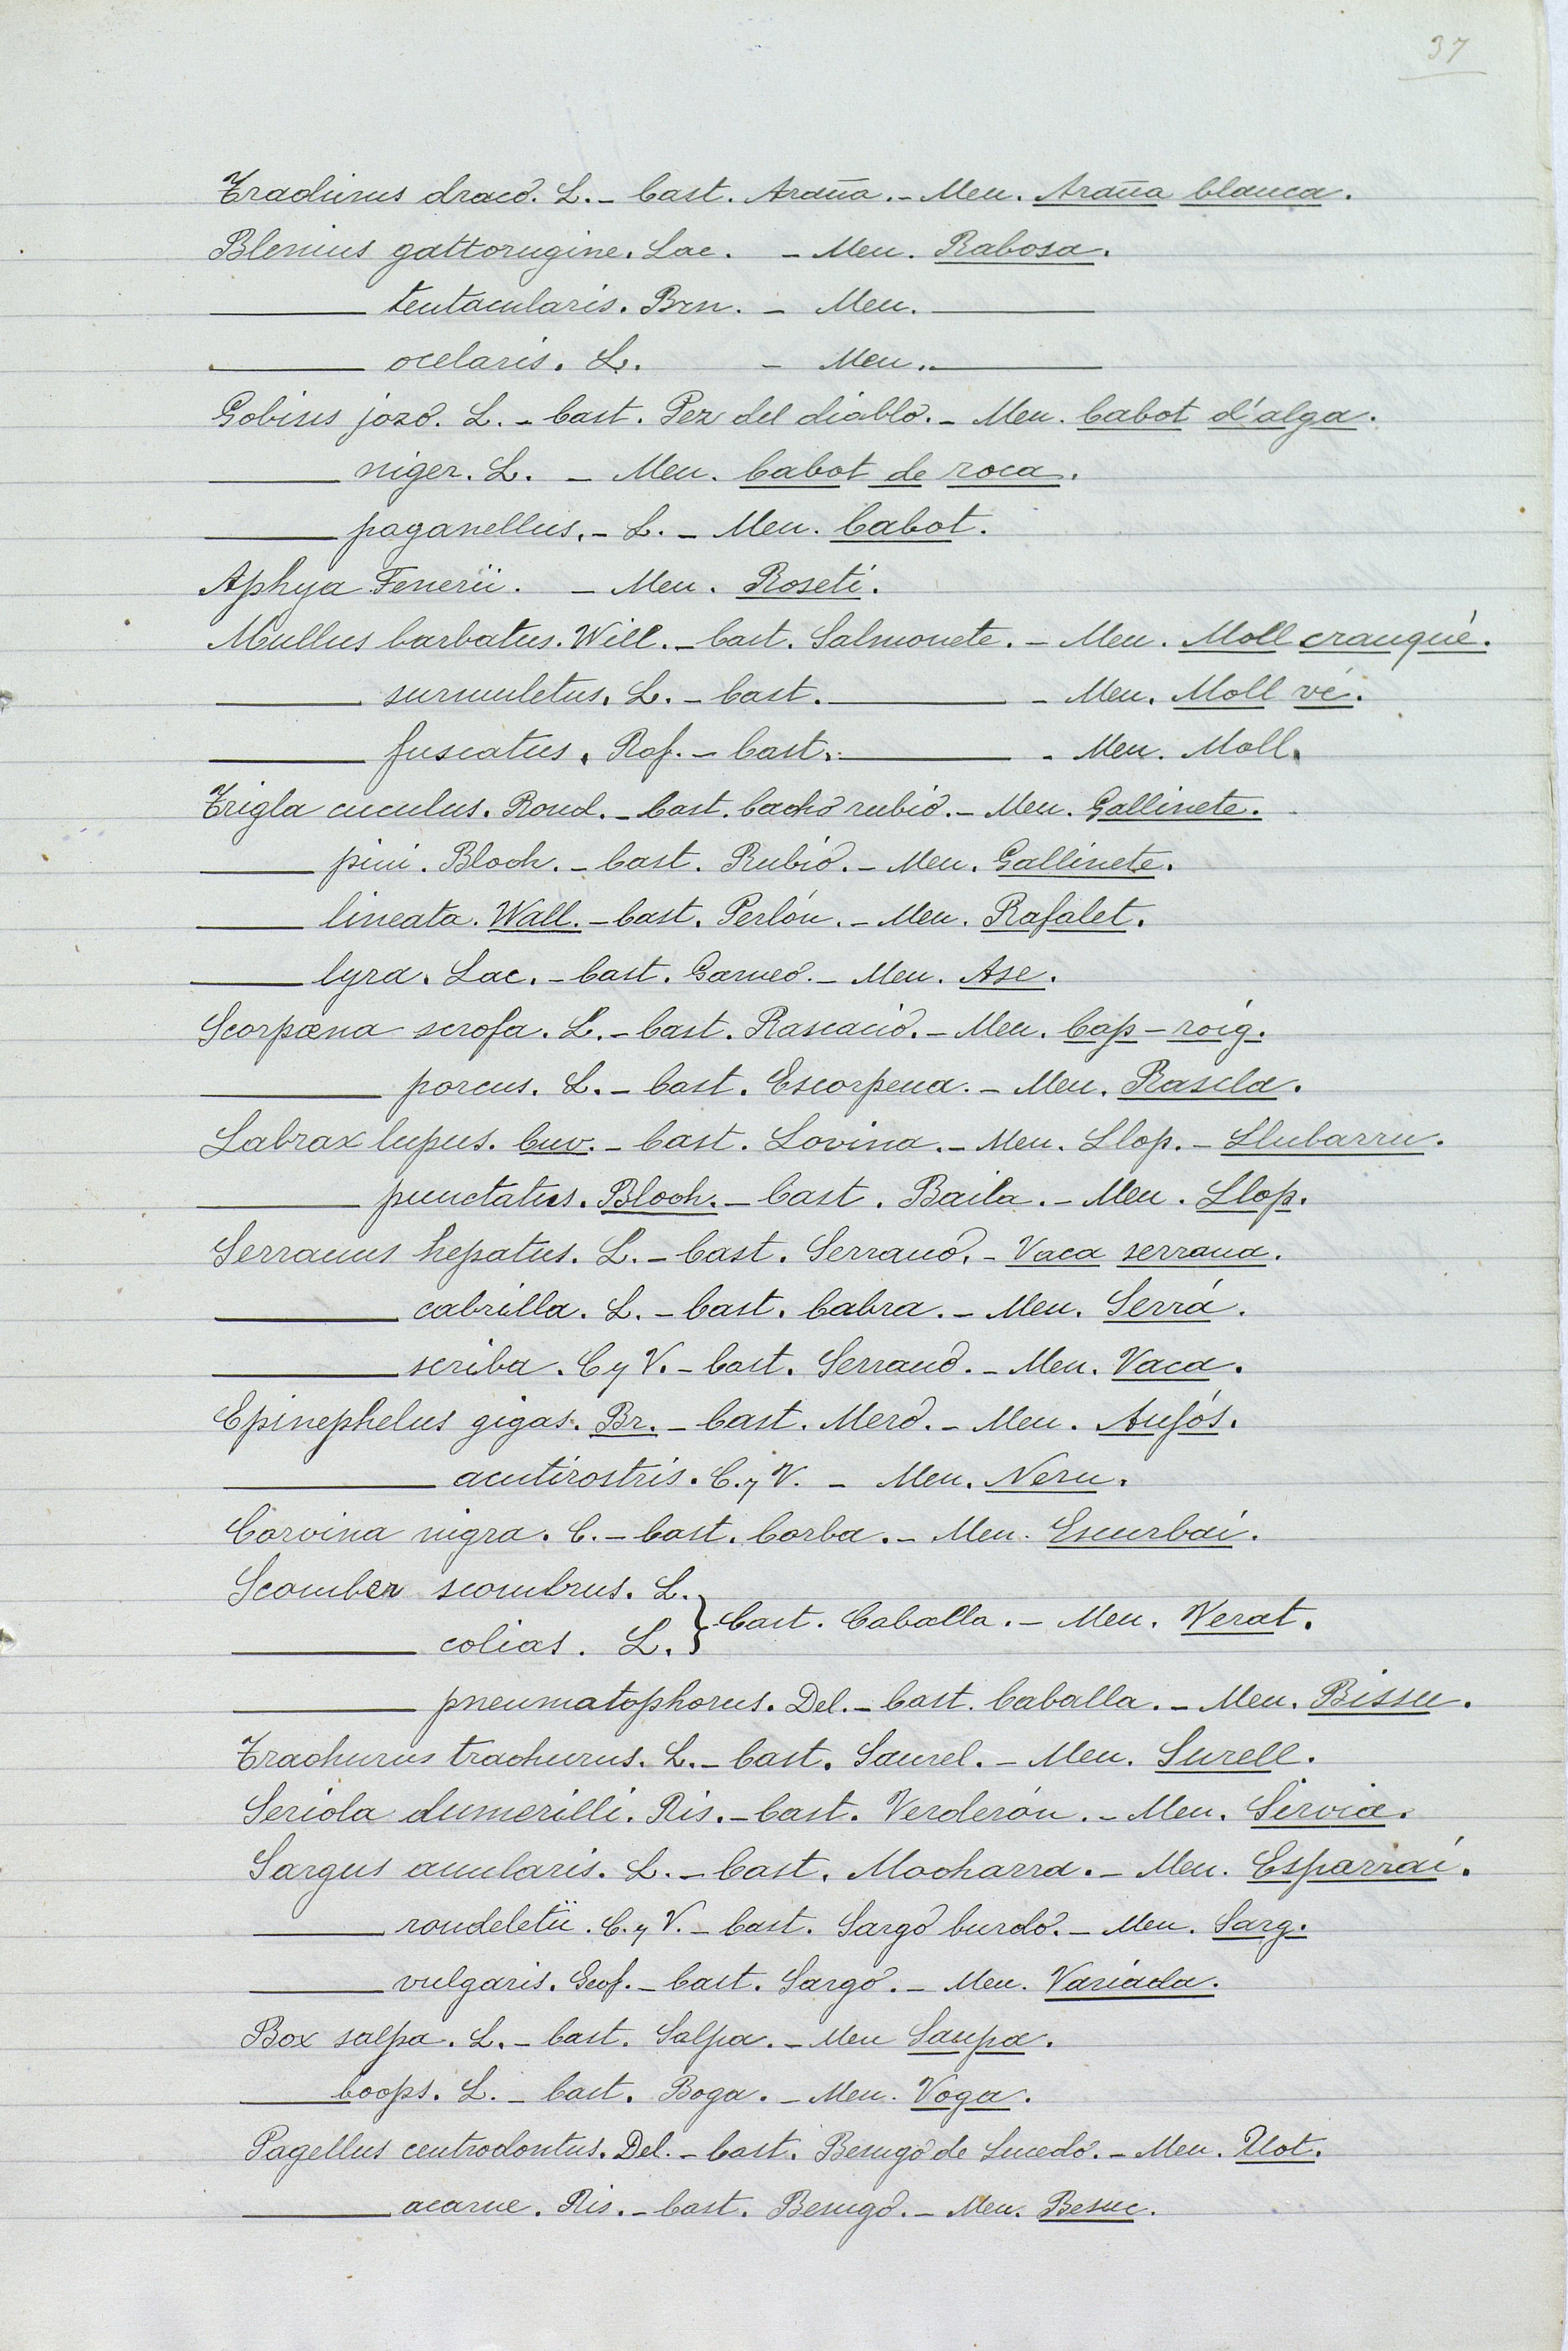 37
Trachinus draco. L. - Cast. Araña. - Men. Araña blanca.
Blenius gattorugine. Lac. - Men. Rabosa.
——— tentacularis. Brn. - Men. ———
——— ocelaris. L. - Men. ———
Gobius jozo. L. - Cast. Pez del diablo. - Men. Cabot d'alga.
——— niger. L. - Men. Cabot de roca.
——— paganellus. - L. - Men. Cabot.
Aphya Fenerii. - Men. Roseti.
Mullus barbatus. Will. - Cast. Salmonete. - Men. Moll cranqué.
——— surmuletus. L. - Cast. ——— - Men. Moll vé.
——— fuscatus. Raf. - Cast. ——— - Men. Moll.
Trigla cuculus. Rond. - Cast. Cacho rubio. - Men. Gallinete.
——— pini. Bloch. - Cast. Rubio. - Men. Gallinete.
——— lineata. Wall. - Cast. Perlón. - Men. Rafalet.
——— lyra. Lac. - Cast. Garneo. - Men. Ase.
Scorpæna scrofa. L. - Cast. Rascacio. - Men. Cap-roig.
——— porcus. L. - Cast. Escorpena. - Men. Rascla.
Labrax lupus. Cuv. - Cast. Lovina. - Men. Llop. - Llubarru.
——— punctatus. Bloch. - Cast. Baila. - Men. Llop.
Serranus hepatus. L. - Cast. Serrano. - Vaca serrana.
——— cabrilla. L. - Cast. Cabra. - Men. Serrá.
——— scriba. C y V. - Cast. Serrano. - Men. Vaca.
Epinephelus gigas. Br. - Cast. Mero. - Men. Anfós.
——— acutirostris. C. y V. - Men. Neru.
Corvina nigra. C. - Cast. Corba. - Men. Escurbai.
Scomber scombrus. L.
——— colias. L. } Cast. Caballa. - Men. Verat.
——— pneumatophorus. Del. - Cast. Caballa. - Men. Bissu.
Trachurus trachurus. L. - Cast. Saurel. - Men. Surell.
Seriola dumerilli. Ris. - Cast. Verderón. - Men. Sirvia.
Sargus annularis. L. - Cast. Mocharra. - Men. Esparrai.
——— rondeletii. C. y V. - Cast. Sargo burdo. - Men. Sarg.
——— vulgaris. Geof. - Cast. Sargo. - Men. Variada.
Box salpa. L. - Cast. Salpa. - Men Saupa.
——— boops. L. - Cast. Boga. - Men. Voga.
Pagellus centrodontus. Del. - Cast. Besugo de Lucedo. - Men. Ulot.
——— acarne. Ris. - Cast. Besugo. - Men. Besuc.